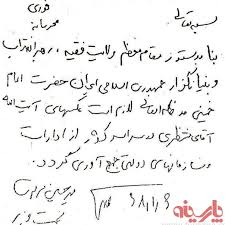 فوری
محرمانه
بسمه تعالی
بنا بدستور مقام معظم ولایت فقیه، رهبر انقلاب
و بنیانگزار جمهوری اسلامی ایران حضرت امام
خمینی مدظله العالی لازم است عکسهای آیت الله
آقای منتظری در سراسر کشور از ادارات
و سازمانهای دولتی جمع آوری گردد.
میرحسین موسوی
نخست وزیر
پارسینه